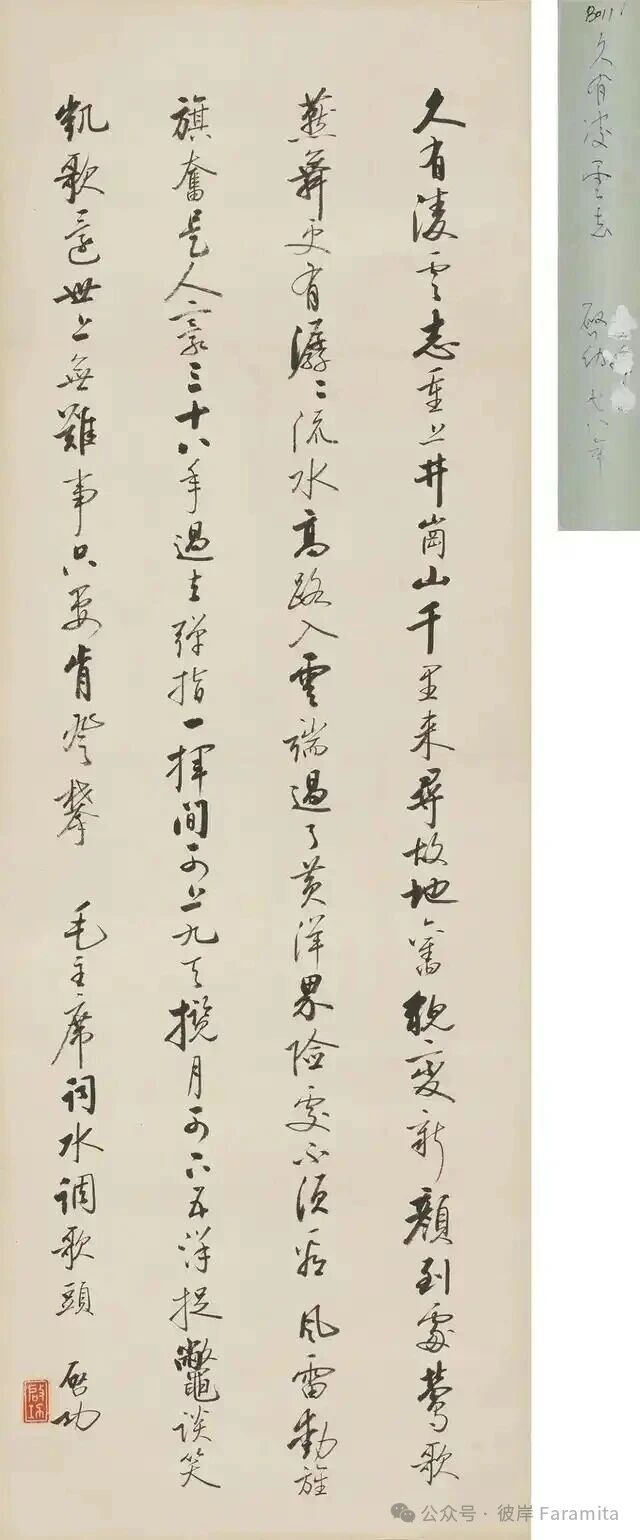 久有淩雲志重上井崗山千里来尋故地舊貌變新顏到處鶯歌
燕舞更有潺々流水高路入雲端過了黃洋界險處不須看風雷動旌
旗奮是人寰三十八年過去彈指一揮間可上九天攬月可下五洋捉鱉談笑
凱歌還世上無難事只要肯登攀 毛主席詞水調歌頭 啟功
啟功
久有凌雲志 啟功 七八年
公众号 · 彼岸 Faramita